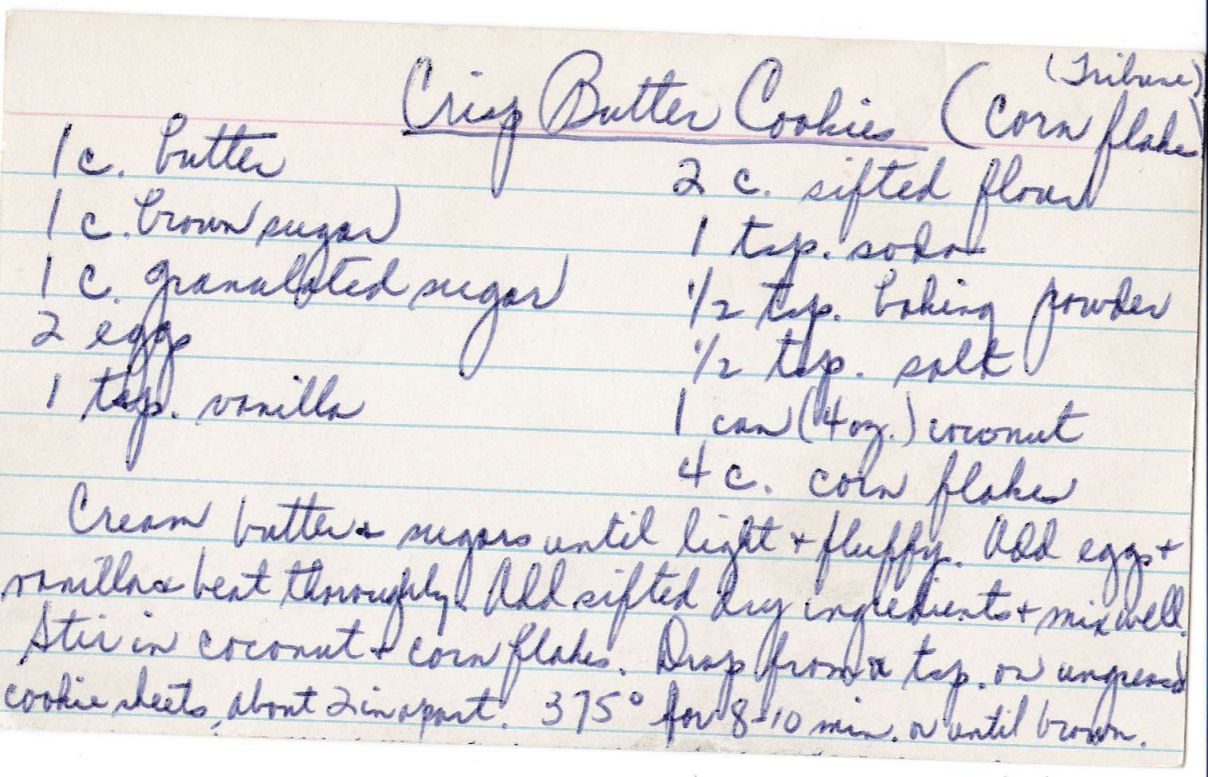 (Tribune)
Crisp Butter Cookies (corn flake)
1 c. butter
1 c. brown sugar
1 c. granulated sugar
2 eggs
1 tsp. vanilla
2 c. sifted flour
1 tsp. soda
1/2 tsp. baking powder
1/2 tsp. salt
1 can (4 oz.) coconut
4 c. corn flakes
Cream butter & sugars until light + fluffy. Add eggs +
vanilla & beat thoroughly. Add sifted dry ingredients + mix well.
Stir in coconut + corn flakes. Drop from a tsp. on ungreased
cookie sheets about 2 in apart. 375° for 8-10 min. or until brown.